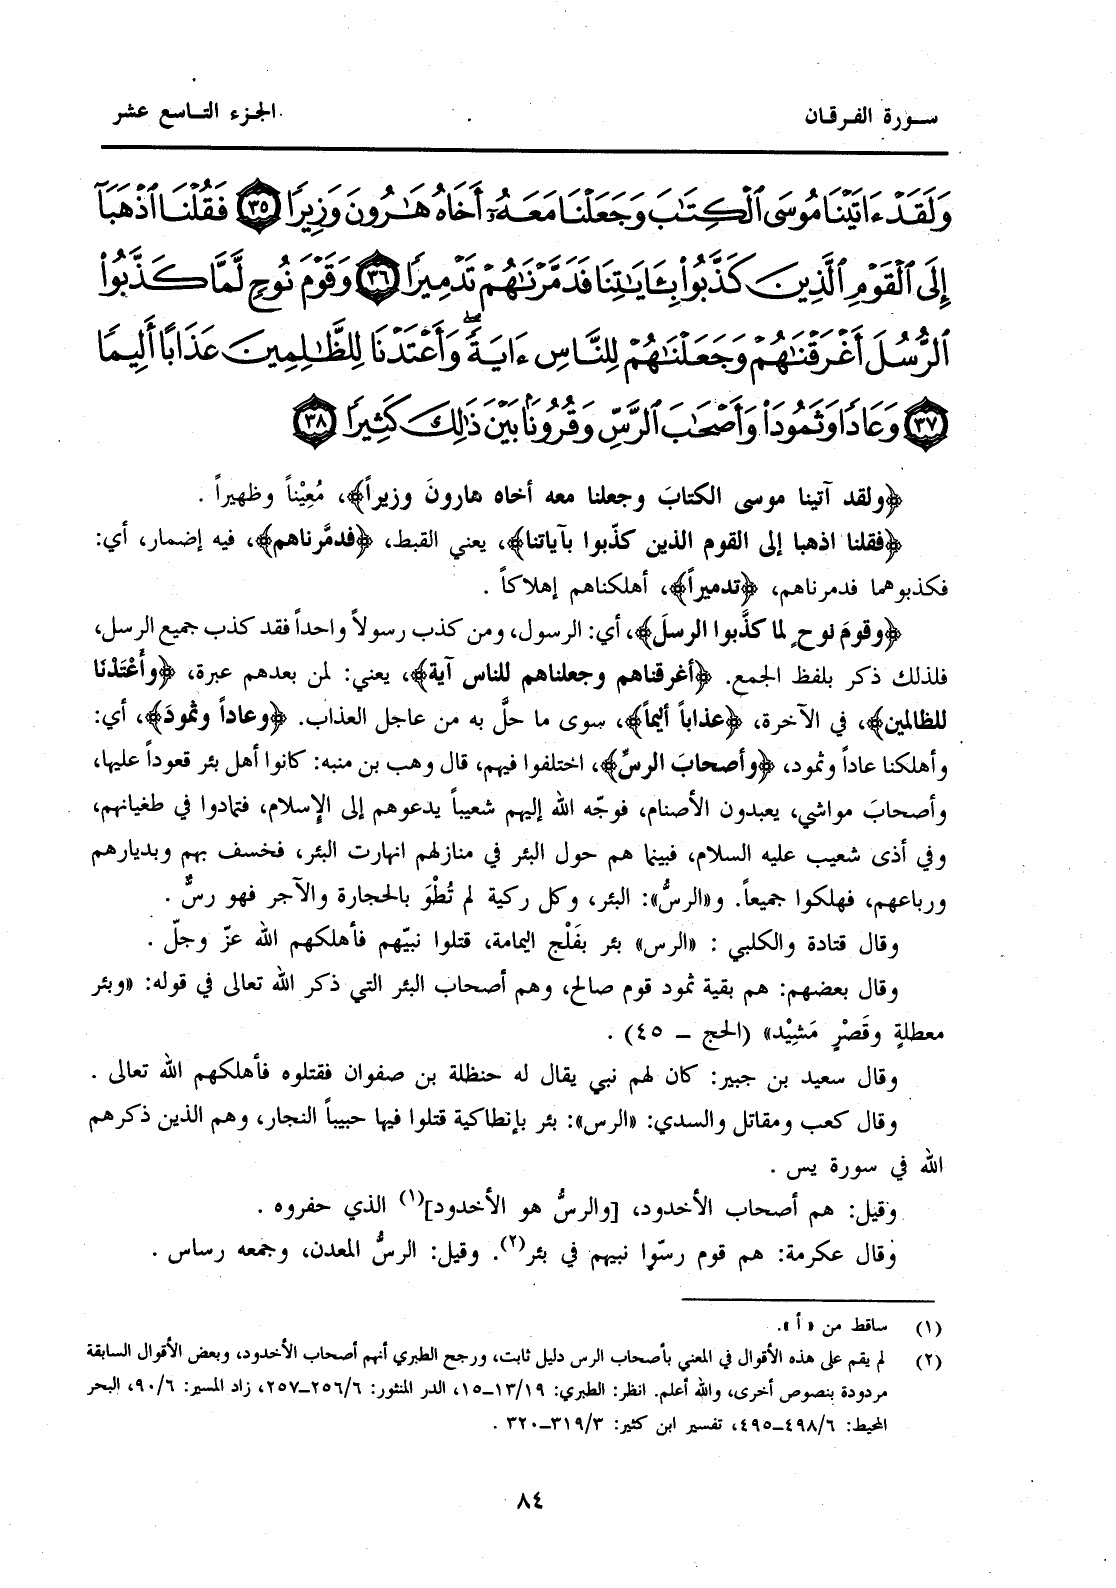 سورة الفرقان
الجزء التاسع عشر
وَلَقَدْ ءَاتَيْنَا مُوسَى ٱلْكِتَٰبَ وَجَعَلْنَا مَعَهُۥٓ أَخَاهُ هَٰرُونَ وَزِيرًا ٣٥ فَقُلْنَا ٱذْهَبَآ
إِلَى ٱلْقَوْمِ ٱلَّذِينَ كَذَّبُوا۟ بِـَٔايَٰتِنَا فَدَمَّرْنَٰهُمْ تَدْمِيرًا ٣٦ وَقَوْمَ نُوحٍ لَّمَّا كَذَّبُوا۟
ٱلرُّسُلَ أَغْرَقْنَٰهُمْ وَجَعَلْنَٰهُمْ لِلنَّاسِ ءَايَةً ۖ وَأَعْتَدْنَا لِلظَّٰلِمِينَ عَذَابًا أَلِيمًا
٣٧ وَعَادًا وَثَمُودَا۟ وَأَصْحَٰبَ ٱلرَّسِّ وَقُرُونًۢا بَيْنَ ذَٰلِكَ كَثِيرًا ٣٨
﴿ولقد آتينا موسى الكتابَ وجعلنا معه أخاه هارونَ وزيراً﴾، مُعِيْناً وظهيراً .
﴿فقلنا اذهبا إلى القوم الذين كذّبوا بآياتنا﴾، يعني القبط، ﴿فدمَّرناهم﴾، فيه إضمار، أي:
فكذبوهما فدمرناهم، ﴿تدميراً﴾، أهلكناهم إهلاكاً .
﴿وقومَ نوحٍ لما كذَّبوا الرسلَ﴾، أي: الرسول، ومن كذب رسولاً واحداً فقد كذب جميع الرسل،
فلذلك ذكر بلفظ الجمع. ﴿أغرقناهم وجعلناهم للناس آية﴾، يعني: لمن بعدهم عبرة، ﴿وأَعْتَدْنَا
للظالمين﴾، في الآخرة، ﴿عذاباً أليماً﴾، سوى ما حلَّ به من عاجل العذاب. ﴿وعاداً وثمودَ﴾، أي:
وأهلكنا عاداً وثمود، ﴿وأصحابَ الرسِّ﴾، اختلفوا فيهم، قال وهب بن منبه: كانوا أهل بئر قعوداً عليها،
وأصحابَ مواشي، يعبدون الأصنام، فوجّه الله إليهم شعيباً يدعوهم إلى الإسلام، فتمادوا في طغيانهم،
وفي أذى شعيب عليه السلام، فبينما هم حول البئر في منازلهم انهارت البئر، فخسف بهم وبديارهم
ورباعهم، فهلكوا جميعاً. و«الرسُّ»: البئر، وكل ركية لم تُطْوَ بالحجارة والآجر فهو رسٌّ .
وقال قتادة والكلبي : «الرس» بئر بفَلْج اليمامة، قتلوا نبيّهم فأهلكهم الله عزّ وجلّ .
وقال بعضهم: هم بقية ثمود قوم صالح، وهم أصحاب البئر التي ذكر الله تعالى في قوله: «وبئر
معطلةٍ وقَصْرٍ مَشِيْد» (الحج ــ ٤٥) .
وقال سعيد بن جبير: كان لهم نبي يقال له حنظلة بن صفوان فقتلوه فأهلكهم الله تعالى .
وقال كعب ومقاتل والسدي: «الرس»: بئر بإنطاكية قتلوا فيها حبيباً النجار، وهم الذين ذكرهم
الله في سورة يس .
وقيل: هم أصحاب الأخدود، [والرسُّ هو الأخدود](١) الذي حفروه .
وقال عكرمة: هم قوم رسّوا نبيهم في بئر(٢). وقيل: الرسُّ المعدن، وجمعه رساس .
(١) ساقط من «أ».
(٢) لم يقم على هذه الأقوال في المعني بأصحاب الرس دليل ثابت، ورجح الطبري أنهم أصحاب الأخدود، وبعض الأقوال السابقة
مردودة بنصوص أخرى، والله أعلم. انظر: الطبري: ١٣/١٩ــ١٥، الدر المنثور: ٢٥٦/٦ــ٢٥٧، زاد المسير: ٩٠/٦، البحر
المحيط: ٤٩٨/٦ــ٤٩٥، تفسير ابن كثير: ٣١٩/٣ــ٣٢٠ .
٨٤